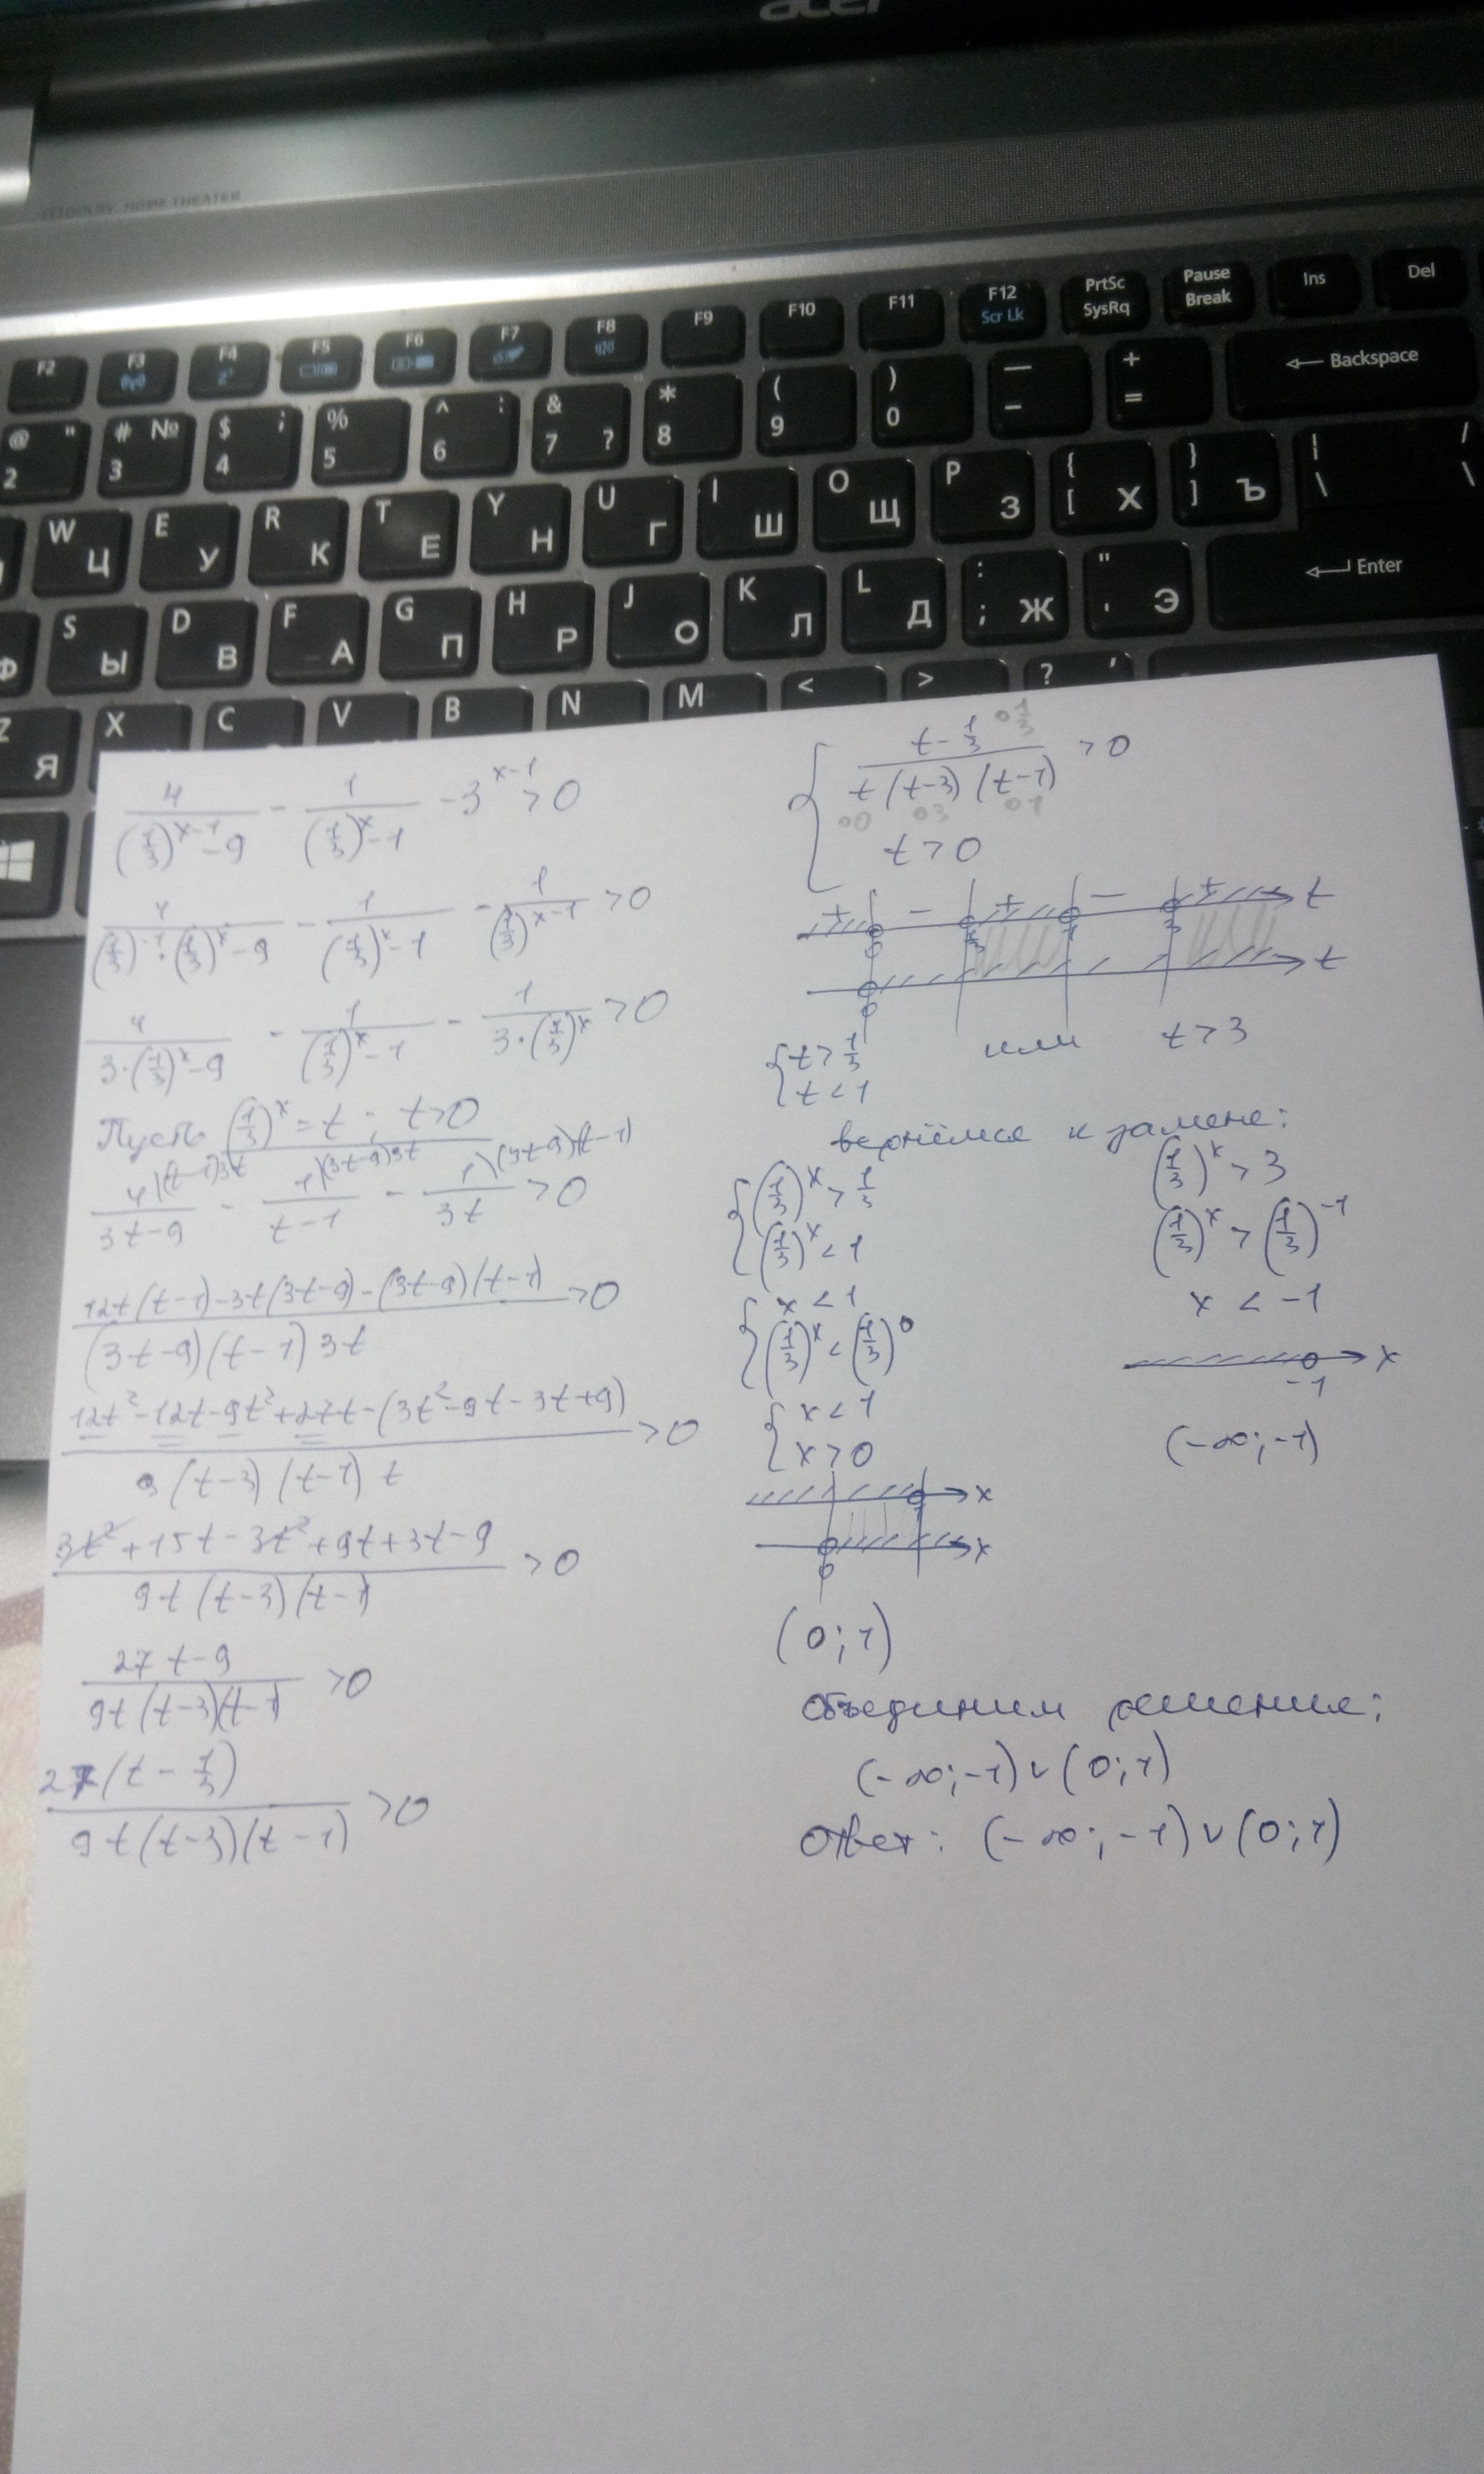 acer
HOME THEATER
F2 F3 F4 F5 F6 F7 F8 F9 F10 F11 F12 Scr Lk PrtSc SysRq Pause Break Ins Del
@ " 2 # № 3 $ ; 4 % 5 ^ : 6 & 7 ? * 8 ( 9 ) 0 — - + = ← Backspace
W Ц E У R К T Е Y Н U Г I Ш O Щ P З { [ Х } ] Ъ | \ / \
Ф S Ы D В F А G П H Р J О K Л L Д : ; Ж " ' Э ← Enter
Z Я X C V B N M < > ? ,
4/((1/3)^(x-1) - 9) - 1/((1/3)^x - 1) - 3^(x-1) > 0
4/((1/3)^(-1) · (1/3)^x - 9) - 1/((1/3)^x - 1) - 1/((1/3)^(x-1)) > 0
4/(3·(1/3)^x - 9) - 1/((1/3)^x - 1) - 1/(3·(1/3)^x) > 0
Пусть (1/3)^x = t; t > 0
4\(t-1)3t/(3t-9) - 1\(3t-9)3t/(t-1) - 1\(3t-9)(t-1)/(3t) > 0
(12t(t-1) - 3t(3t-9) - (3t-9)(t-1))/((3t-9)(t-1)3t) > 0
(12t² - 12t - 9t² + 27t - (3t² - 9t - 3t + 9))/(9(t-3)(t-1)t) > 0
(3t² + 15t - 3t² + 9t + 3t - 9)/(9t(t-3)(t-1)) > 0
(27t - 9)/(9t(t-3)(t-1)) > 0
27(t - 1/3)/(9t(t-3)(t-1)) > 0
{ (t - 1/3)/(t(t-3)(t-1)) > 0
t > 0
+ - + - + t
0 1/3 1 3
t
0
{ t > 1/3 или t > 3
t < 1
вернёмся к замене:
{ (1/3)^x > 1/3
(1/3)^x < 1
{ x < 1
(1/3)^x < (1/3)^0
{ x < 1
x > 0
1 x
0 x
(0; 1)
(1/3)^x > 3
(1/3)^x > (1/3)^(-1)
x < -1
-1 x
(-∞; -1)
Объединим решения:
(-∞; -1) ∪ (0; 1)
Ответ: (-∞; -1) ∪ (0; 1)